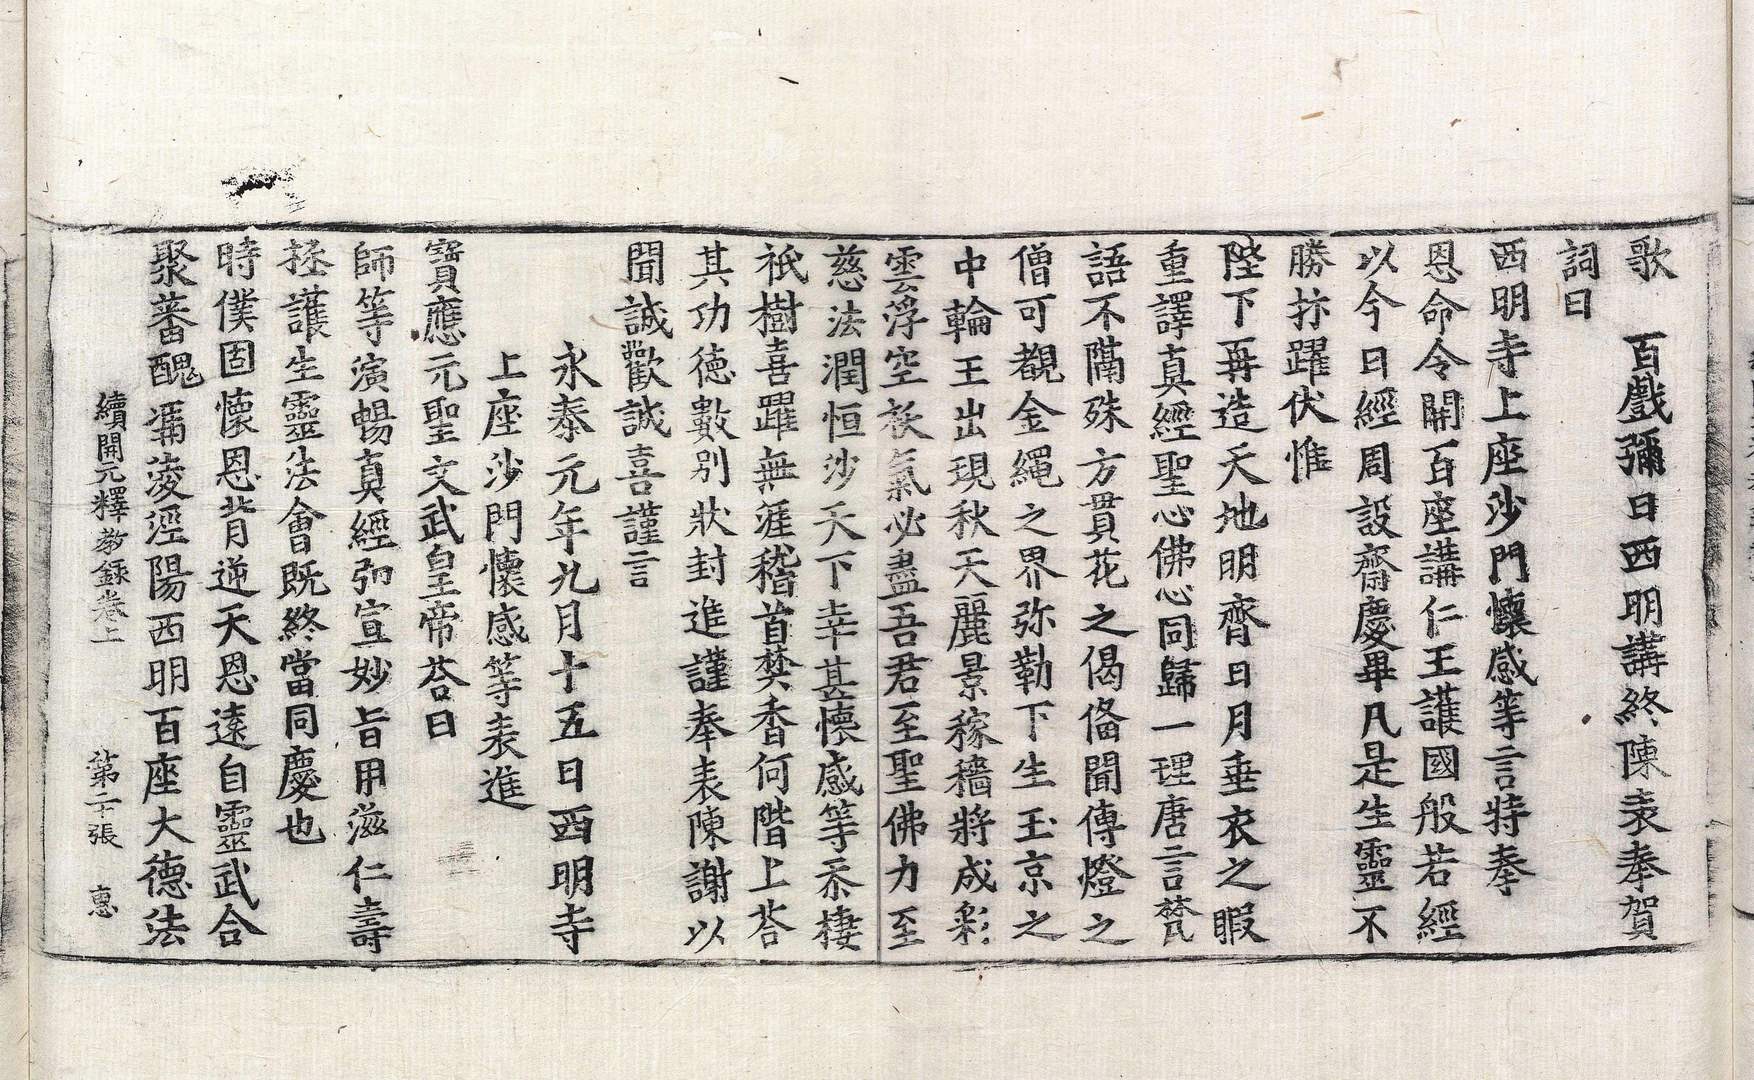 歌　百戲彌日西明講終陳表奉賀
詞曰
西明寺上座沙門懷感等言特奉
恩命令開百座講仁王護國般若經
以今日經周設齋慶畢凡是生靈不
勝抃躍伏惟
陛下再造天地明齊日月垂衣之暇
重譯真經聖心佛心同歸一理唐言梵
語不隔殊方貫花之偈俻聞傳燈之
僧可覩金繩之界弥勒下生玉京之
中輪王出現秋天麗景稼穡將成彩
雲浮空祅氣必盡吾君至聖佛力至
慈法潤恒沙天下幸甚懷感等忝棲
祇樹喜躍無涯稽首焚香何階上荅
其功德數別狀封進謹奉表陳謝以
聞誠歡誠喜謹言
永泰元年九月十五日西明寺
上座沙門懷感等表進
寶應元聖文武皇帝荅曰
師等演暢真經弘宣妙旨用滋仁壽
拯護生靈法會既終當同慶也
時僕固懷恩背逆天恩遠自靈武合
聚蕃醜彌淩涇陽西明百座大德法
續開元釋教錄卷上　第二十張　惠